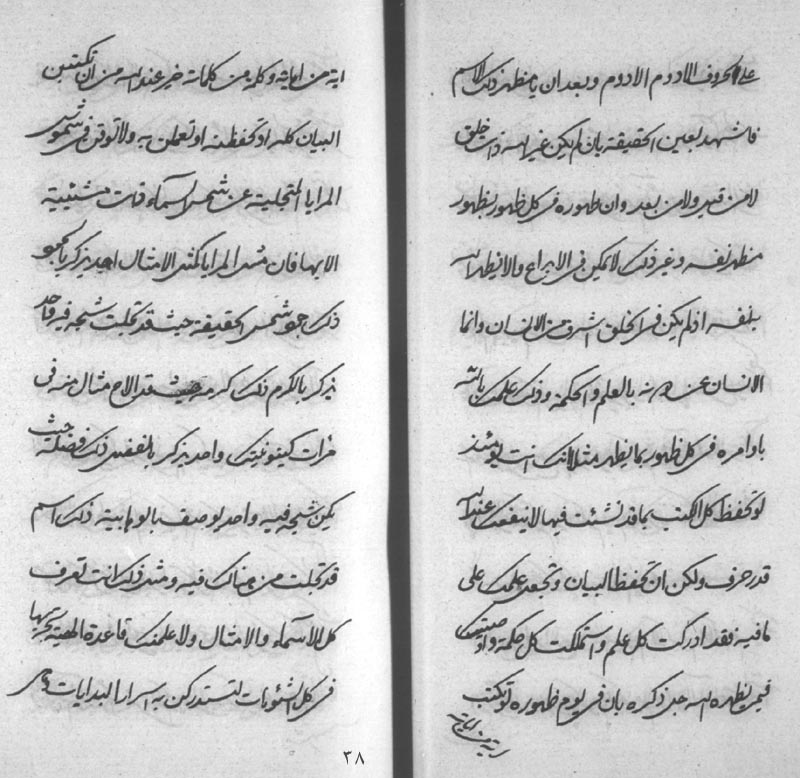 علی الحروف الادوم الادوم وبعد ان یامظهر ذلک الاسم
فاشهد بعین الحقیقة بان لم یکن غیر الله ذات خلق
لامن قبل ولامن بعد وان ظهوره فی کل ظهور بظهور
مظهر نفسه وغیر ذلک لایمکن فی الابداع والا لیظهر الله
بنفسه اذ لم یکن فی الخلق اشرف من الانسان وانما
الانسان عن دونه بالعلم والحکمة وذلک علمک بالله
باوامره فی کل ظهور بما یظهر مثلا انک انت یومئذ
لو تحفظ کل الکتب بما قد نشئت فیها لاینفعک عند الله
قدر حرف ولکن ان تحفظ البیان وتجعل علمک علی
مافیه فقد ادرکت کل علم واستملکت کل حکمة واوصیتک
فیمن یظهره الله جل ذکره بان فی یوم ظهوره لو تکتب
ایة من ایاته
ایة من ایاته وکلمة من کلماته خیر عند الله من ان تکتبن
البیان کله او تحفظنه او تعملن به ولاتوقن فی شموس
المرایا المتجلیة عن شمس السماء ذات مشیئیة
الا بها فان مثل المرایا کمثل الامثال احد یذکر بالمحو
ذلک محو شمس الحقیقة حیث قد تجلت شبحه فیه واحد
یذکر بالکرم ذلک کرمه حیث قد الاح مثال منه فی
مرات کینونیتک واحد یذکر بالفضل ذلک فضله حیث
یکن شبحه فیه واحد یوصف بالوهابیة ذلک اسم
قد تجلت من هناک فیه ومثل ذلک انت تعرف
کل الاسماء والامثال ولاعلمنک قاعدة الهیة تجریها
فی کل الشئونات لتستدرکن به اسرار البدایات
۳۸